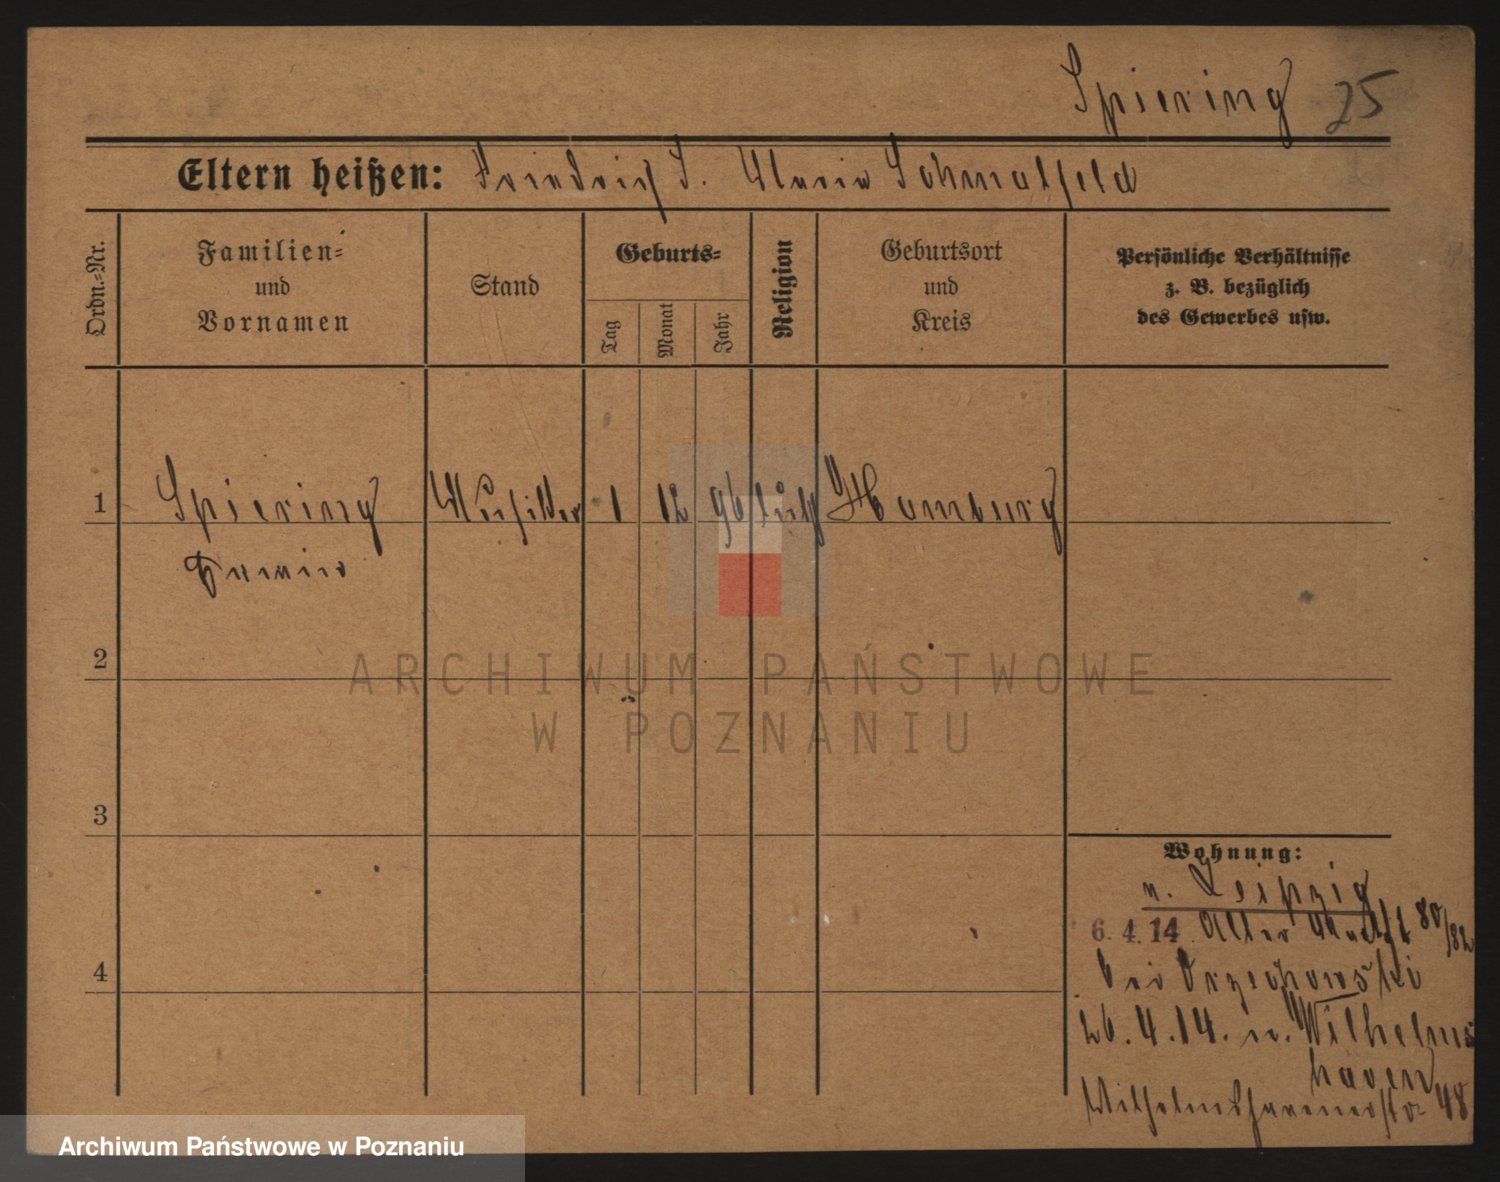 Spiering 25
Eltern heißen: Friedrich S. Maria Schmalfeld
Ordn.=Nr.
Familien=
und
Vornamen
Stand
Geburts=
Tag
Monat
Jahr
Religion
Geburtsort
und
Kreis
Persönliche Verhältnisse
z. B. bezüglich
des Gewerbes usw.
1 Spiering 1 12 96 Hamburg
2
3
4
Wohnung:
n. Leipzig
6. 4. 14 Alter Markt 80/82
bei Orzechowski
26. 4. 14. n. Wilhelms
haven
Wilhelmshavenerstr 48
ARCHIWUM PAŃSTWOWE
W POZNANIU
Archiwum Państwowe w Poznaniu